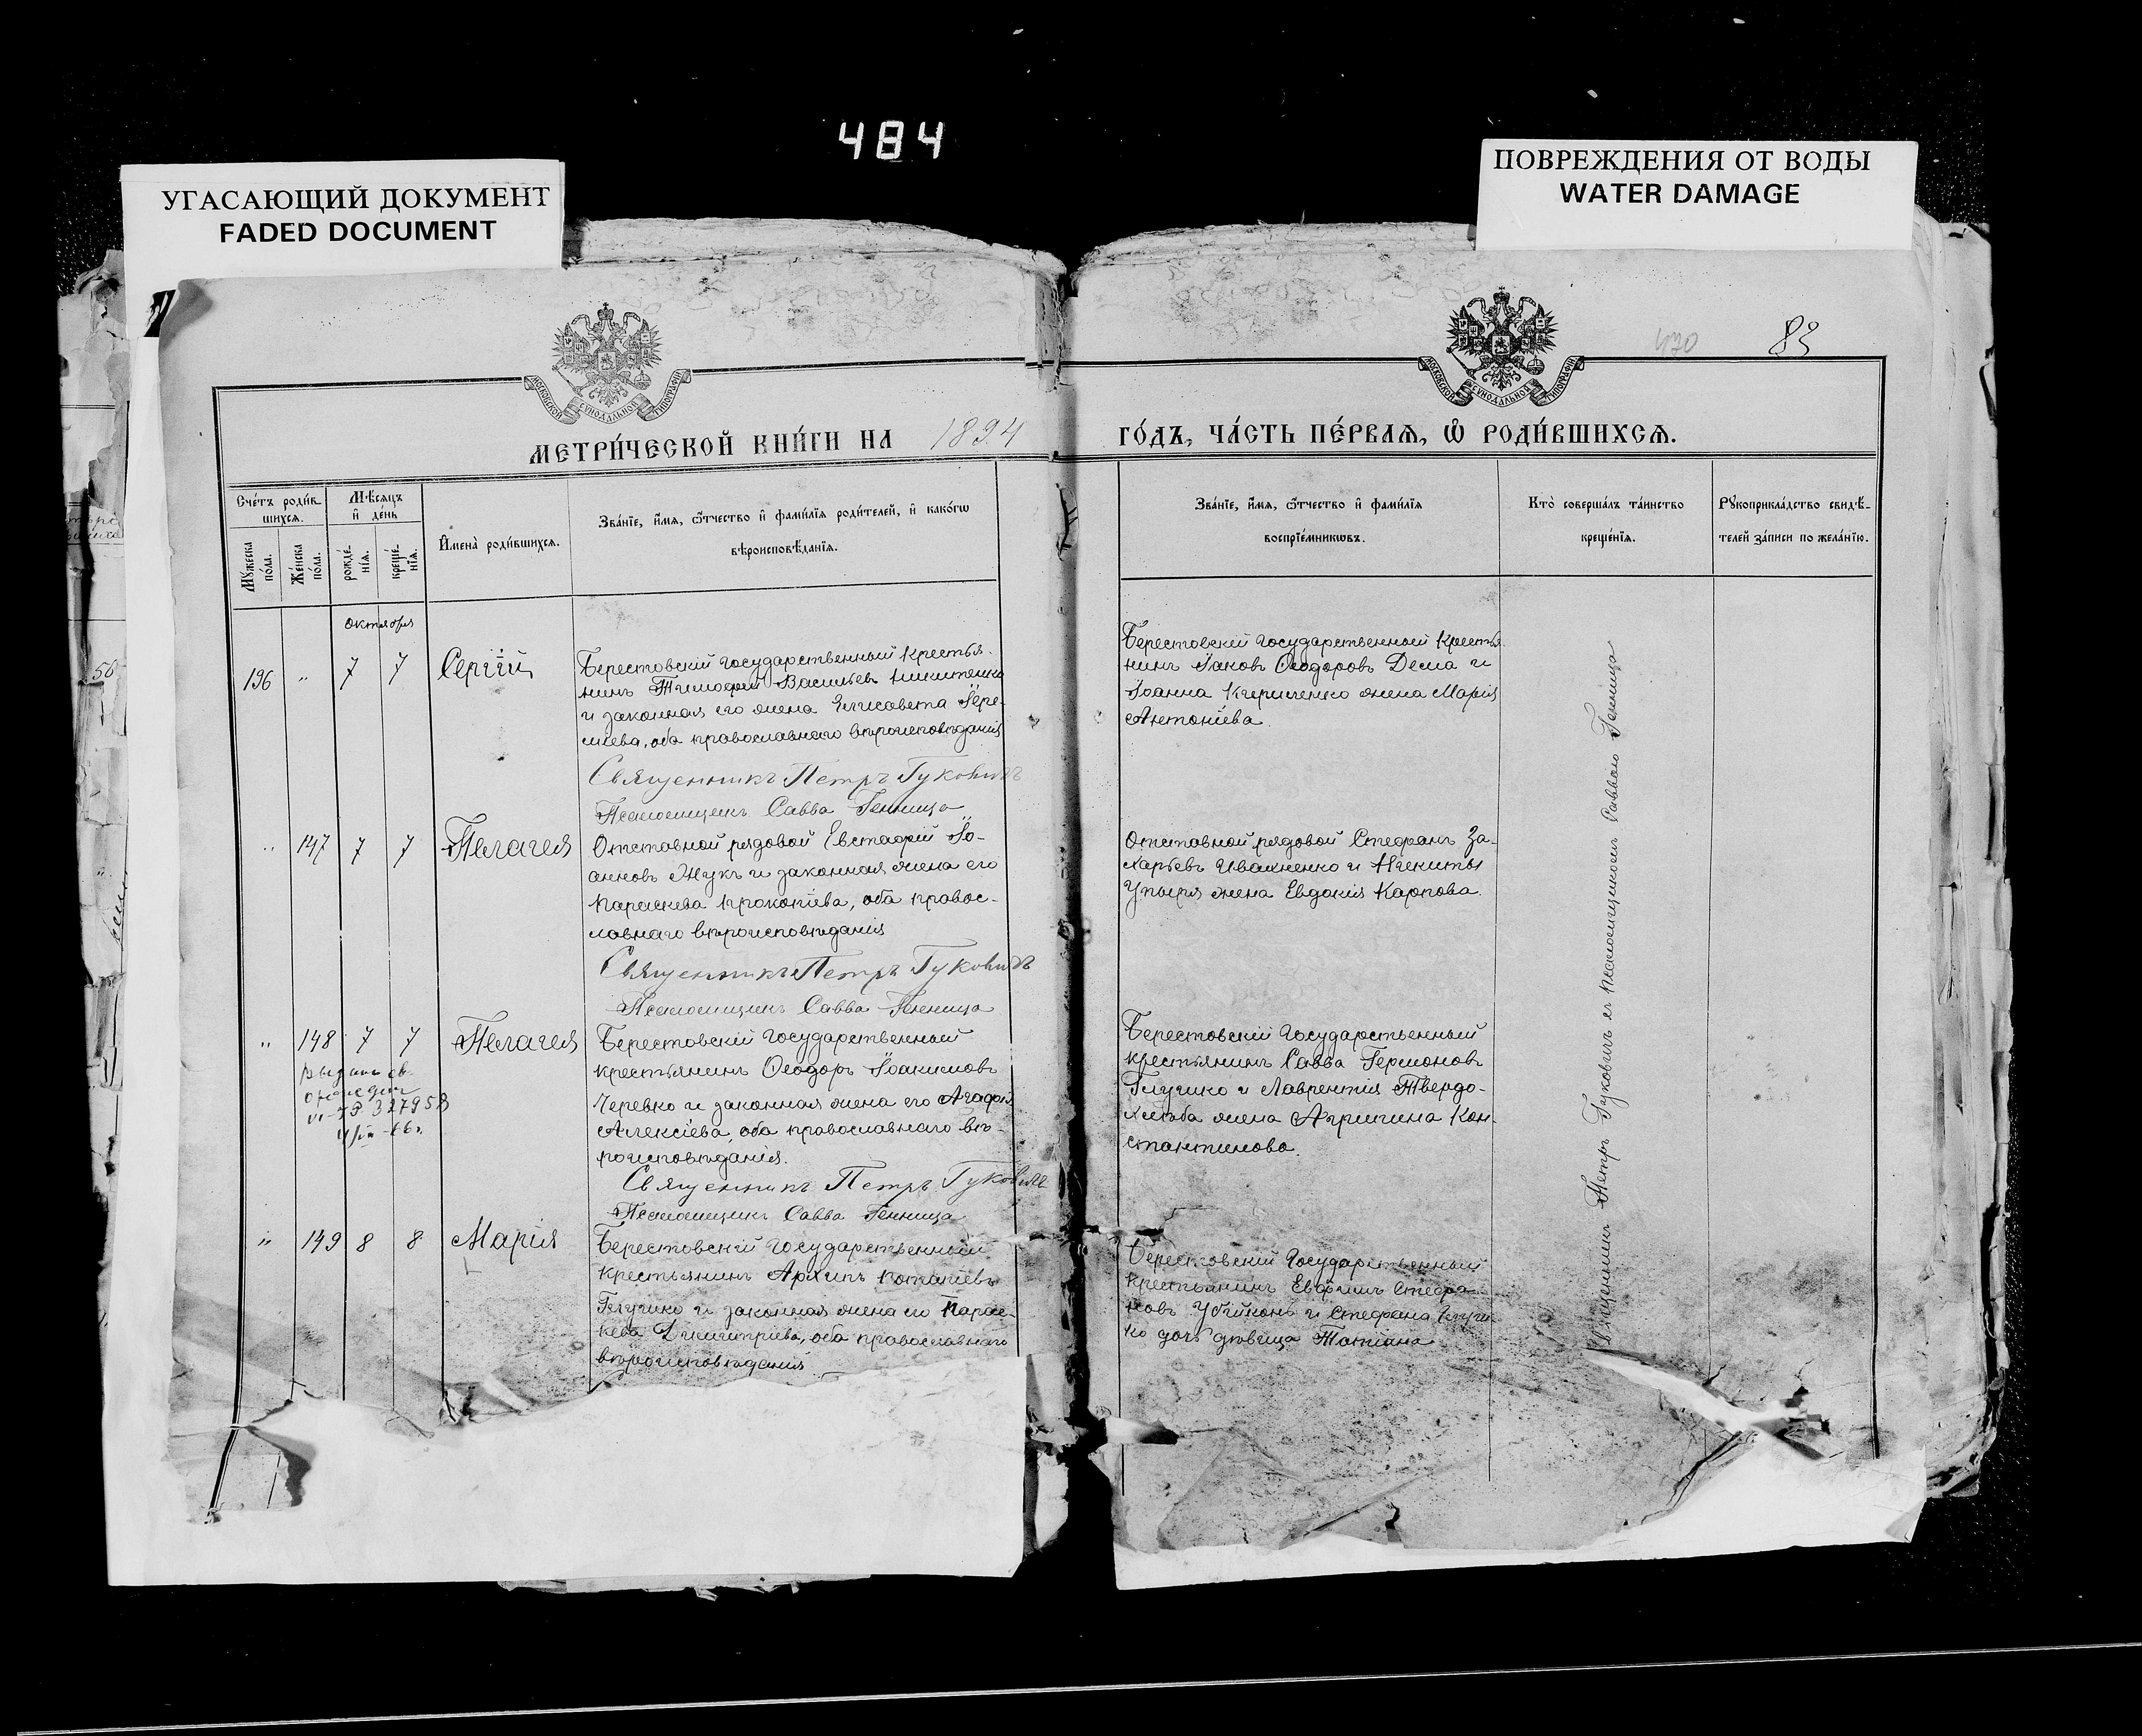 484
УГАСАЮЩИЙ ДОКУМЕНТ
FADED DOCUMENT
ПОВРЕЖДЕНИЯ ОТ ВОДЫ
WATER DAMAGE
МОСКОВСКОЙ СУНОДАЛЬНОЙ ТИПОГРАФІИ
МОСКОВСКОЙ СУНОДАЛЬНОЙ ТИПОГРАФІИ
470
83
МЕТРИ́ЧЕСКОЙ КНИ́ГИ НА 1894
ГО́ДЪ, ЧА́СТЬ ПЕ́РВАЯ, Ѡ҆ РОДИ́ВШИХСЯ.
Сче́тъ роди́в-
шихся.
Мꙋ́жеска по́ла.
Же́нска по́ла.
Мѣ́сяцъ
и҆ де́нь
рожде́-
нїя.
креще́-
нїя.
И҆мена̀ роди́вшихся.
Зва́нїе, и҆́мя, ѻ҆́тчество и҆ фами́лїя роди́телей, и҆ како́гѡ
вѣроисповѣ́данїя.
Зва́нїе, и҆́мя, ѻ҆́тчество и҆ фами́лїя
воспрїе́мникѡвъ.
Кто̀ соверша́лъ та́инство
креще́нїя.
Рꙋкоприкла́дство свидѣ́-
телей за́писи по жела́нїю.
Октября
196 " 7 7 Сергій
Берестовскій Государственный Крестья-
нинъ Тимофей Васильевъ Никитенко
и законная его жена Елисавета Іере-
міева, оба православнаго вѣроисповѣданія
Священникъ Петръ Гуковичъ
Псаломщикъ Савва Генница
Берестовскій Государственный Крестья-
нинъ Іаковъ Ѳеодоровъ Дема и
Іоанна Кириченко жена Марія
Антоніева.
" 147 7 7 Пелагея
Отставной рядовой Евстафій Іо-
анновъ Жукъ и законная жена его
Параскева Прокопіева, оба правос-
лавнаго вѣроисповѣданія
Священникъ Петръ Гуковичъ
Псаломщикъ Савва Генница
Отставной рядовой Стефанъ За-
харьевъ Ивахненко и Никиты
Упыря жена Евдокія Карпова.
" 148 7 7 Пелагея
327958
Берестовскій Государственный
крестьянинъ Ѳеодоръ Іоакимовъ
Черевко и законная жена его Агафія
Алексіева, оба православнаго вѣ-
роисповѣданія.
Священникъ Петръ Гуковичъ
Псаломщикъ Савва Генница
Берестовскій Государственный
крестьянинъ Савва Гермоновъ
Глушко и Лаврентія Твердо-
хлѣба жена Агрипина Кон-
стантинова.
" 149 8 8 Марія
Берестовскій Государственный
Крестьянинъ Архипъ Потапіевъ
Глушко и законная жена его Парас-
кева Димитріева, оба православнаго
вѣроисповѣданія
Берестовскій Государственный
крестьянинъ Евфимъ Стефа-
новъ и Стефана
дочь дѣвица Татіана
Священникъ Петръ Гуковичъ съ Псаломщикомъ Саввою Генница